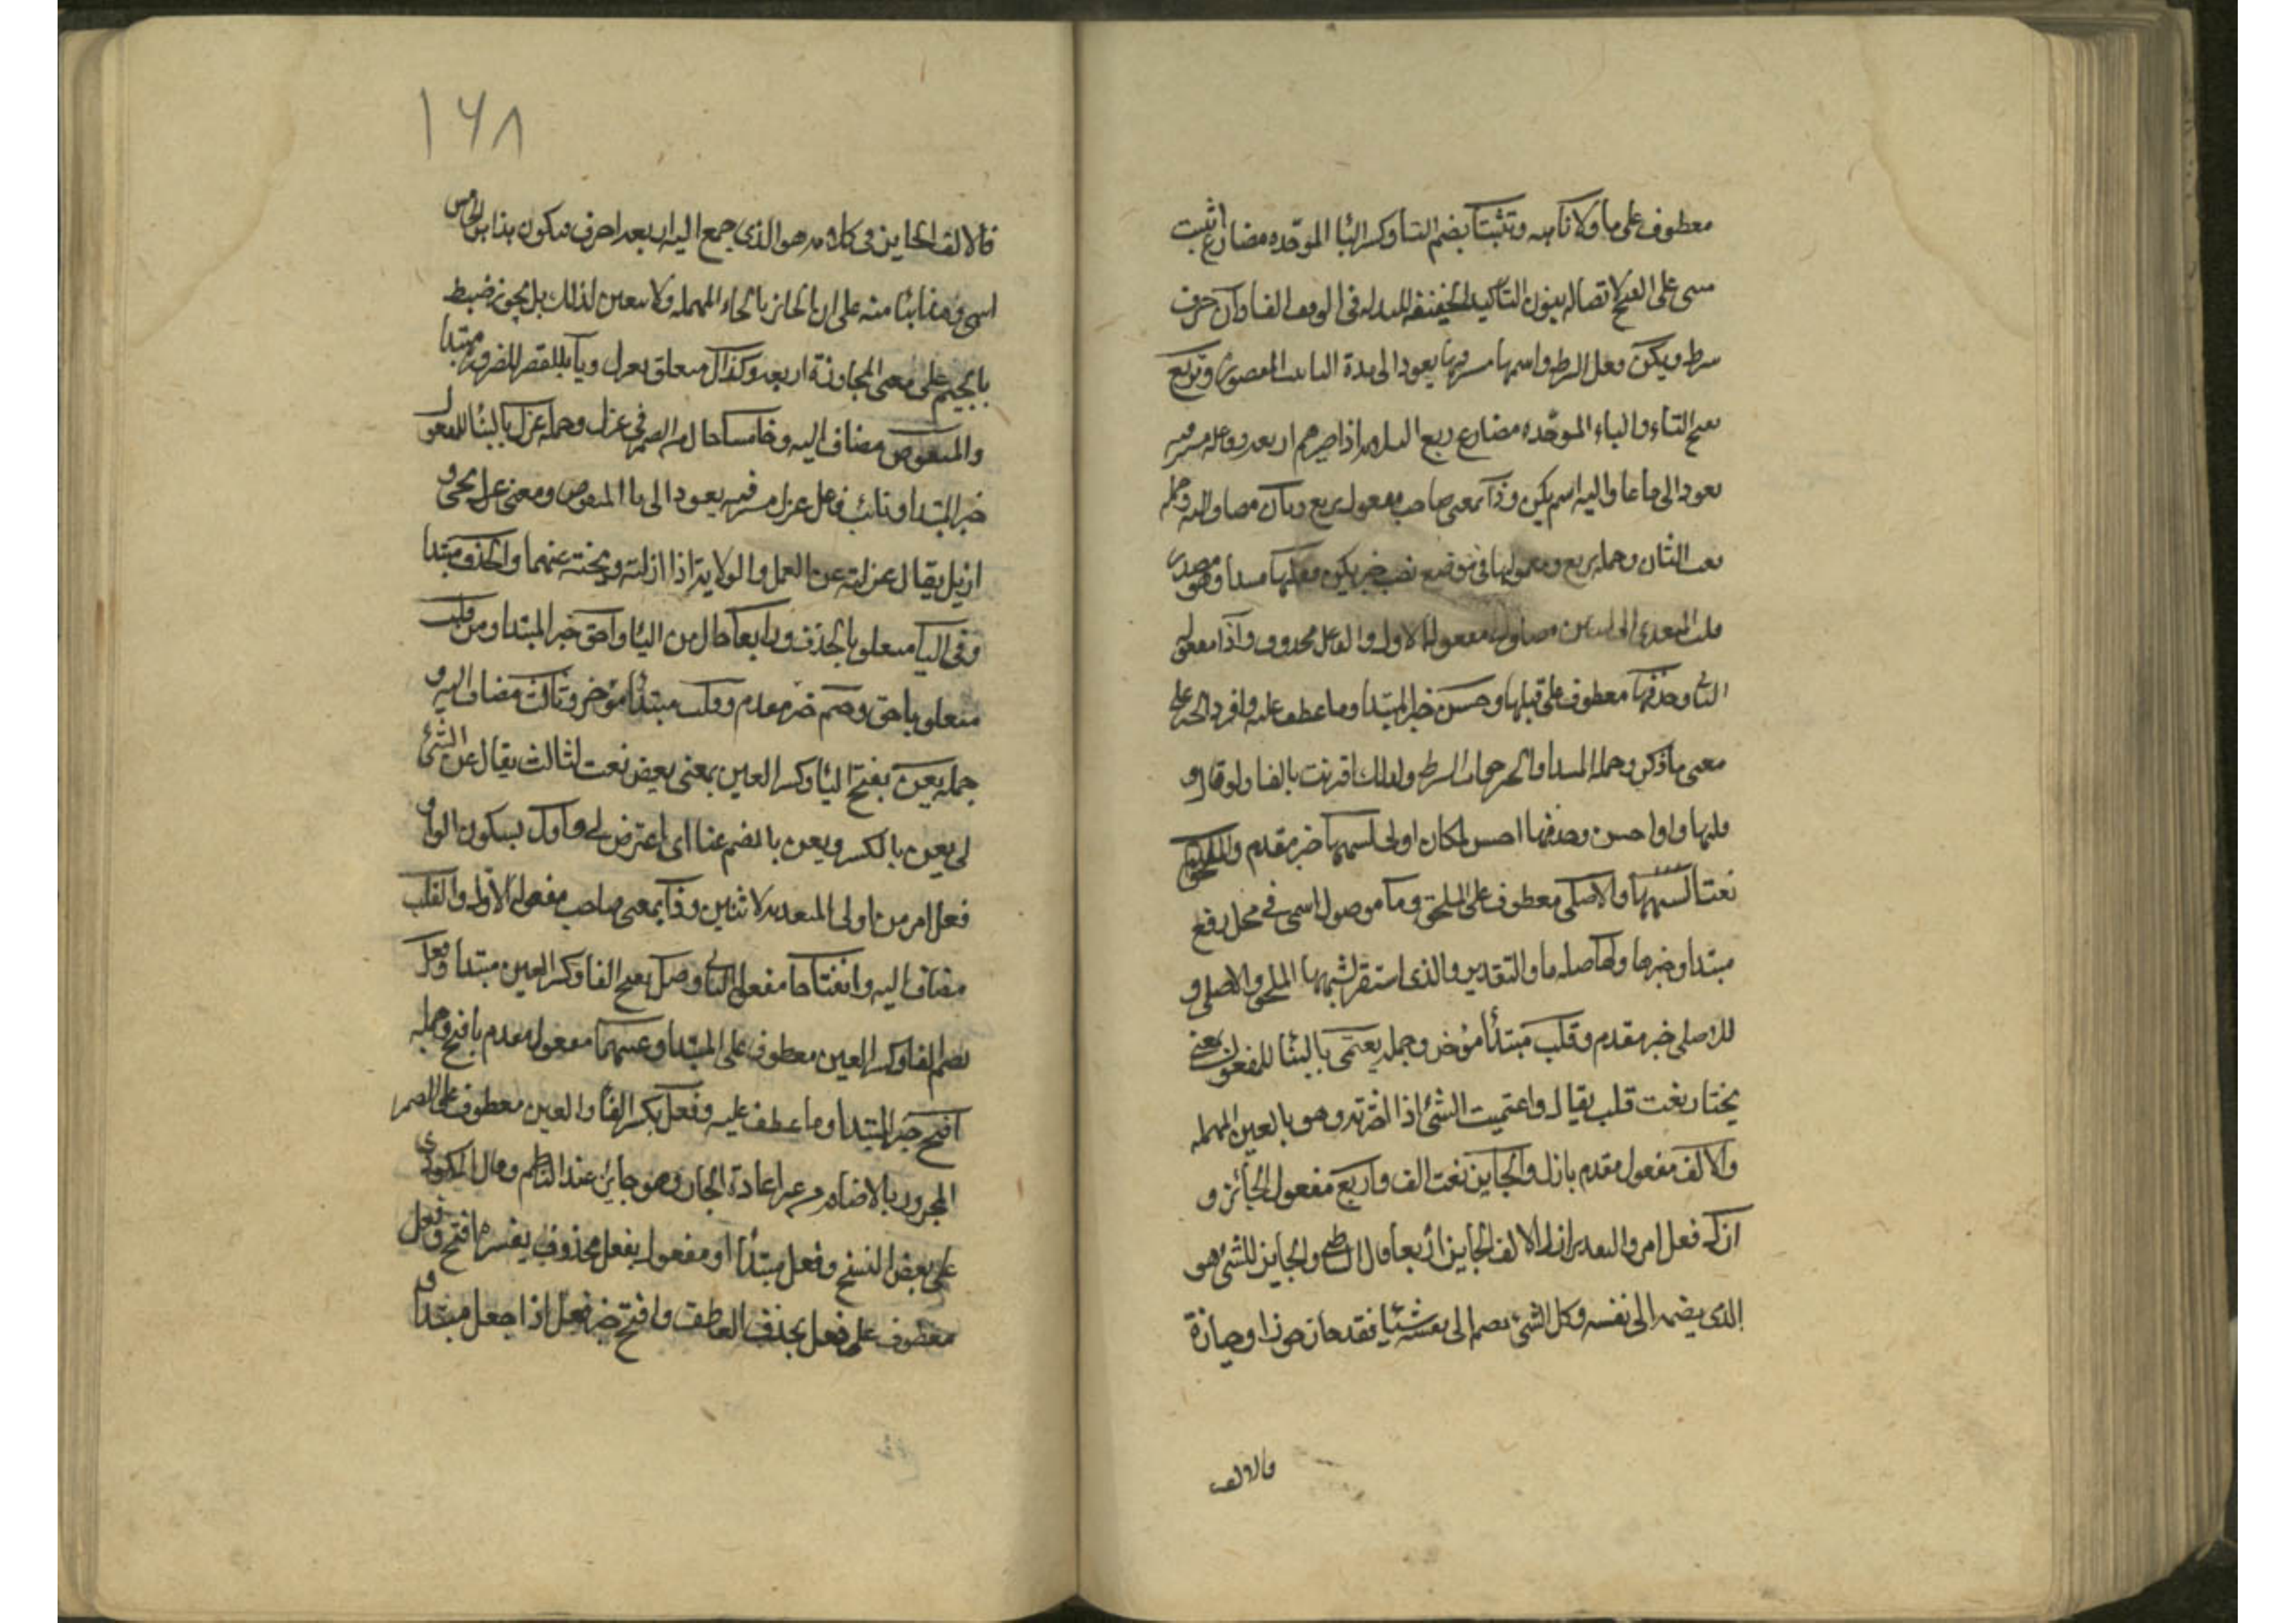 معطوف على ما ولا نافيه وتثبتا بضم التا وكسر البا الموحده مضارع اثبت
مبنى على الفتح لاتصاله بنون التاكيد الخفيفه المبدله فى الوقف الفا وان حرف
شرط ويكن فعل الشرط واسمها مستتر فيها يعود الى مدة التانيث المقصوره وتربع
بفتح التاء والباء الموحده مضارع ربع اذا صيرهم اربعه وفاعله مستتر فيه
يعود الى ما عاد اليه اسم يكن وذا بمعنى صاحب مفعول تربع وثان مضاف اليه وجمله
نعت لثان وجمله تربع ومعمولها فى موضع نصب خبر يكن فقلبها مبتدا وهو مصدر
قلب المتعدى الى اثنين مضاف الى مفعوله الاول والفاعل محذوف واوا مفعوله
الثانى وحذفها معطوف على قلبها وحسن خبر المبتدا وما عطف عليه وافرد الخبر على
معنى ما ذكر وجمله المبتدا والخبر جواب الشرط ولذلك اقرنت بالفا ولو قال و
قلبها واوا حسن وحذفها احسن لكان اولى لشبهها خبر مقدم والملحق
نعت لشبهها والاصلى معطوف على الملحق وما موصول اسمى فى محل رفع
مبتدا وخبرها ولها صله ما والتقدير والذى استقر لشبهها الملحق والاصلى و
للاصلى خبر مقدم وقلب مبتدأ مؤخر وجمله يعتمى بالبنا للمفعول بمعنى
يختار نعت قلب يقال واعتميت الشئ اذا اخترته وهو بالعين المهمله
والالف مفعول مقدم بازل والجايز نعت الف واربع مفعول الجائز و
ازل فعل امر والتقدير ازل الالف الجايز اربعا قال الشاطبى والجايز للشئ هو
الذى يضمه الى نفسه وكل الشئ يضم الى نفسه شئيا فقد حاز حوزا وحيازة
والالف
١٦٨
فالالف الجايز فى كلامه هو الذى جمع اليه اربعه احرف فيكون هذا هو الخامس
انتهى وهذا بنا منه على ان الحائز بالحاء المهمله ولا يتعين لذلك بل يجوز ضبط
بالجيم على معنى المجاوزة اربعه وكذاك متعلق بعزل ويا بالقصر للضرورة مبتدا
والمنقوص مضاف اليه وخامسا حال من الضمير فى عزل وجمله عزل بالبنا للمفعول
خبر المبتدا ونائب فاعل عزل مستتر فيه يعود الى يا المنقوص ومعنى عزل نحى و
ازيل يقال عزلته عن العمل والولايه اذا ازلته ونحيته عنهما والحذف مبتدا
وفى اليا متعلق بالحذف ورابعا حال من اليا واحق خبر المبتدا ومن قلب
متعلق باحق وحتم خبر مقدم وقلب مبتدأ مؤخر وثالث مضاف اليه و
جمله يعن بفتح اليا وكسر العين بمعنى يعرض نعت لثالث يقال عن الشئ
لى يعن بالكسر ويعن بالضم عنا اى اعترض لى واول بسكون الواو
فعل امر من اولى المتعديه لاثنين وذا بمعنى صاحب مفعوله الاول والقلب
مضاف اليه وانفتاحا مفعوله الثانى وفعل بفتح الفا وكسر العين مبتدا وفعل
بضم الفا وكسر العين معطوف على المبتدا وعينهما مفعول مقدم بافتح وجمله
افتح خبر المبتدا وما عطف عليه وفعل بكسر الفا والعين معطوف على الضمير
المجرور بالاضافه من غير اعادة الجار وهو جايز عند الناظم وقال المكودى
على بعض النسخ وفعل مبتدأ او مفعول بفعل محذوف يفسره افتح وفعل
معطوف على فعل بحذف العاطف وافتح خبر فعل اذا جعل مبتدا و